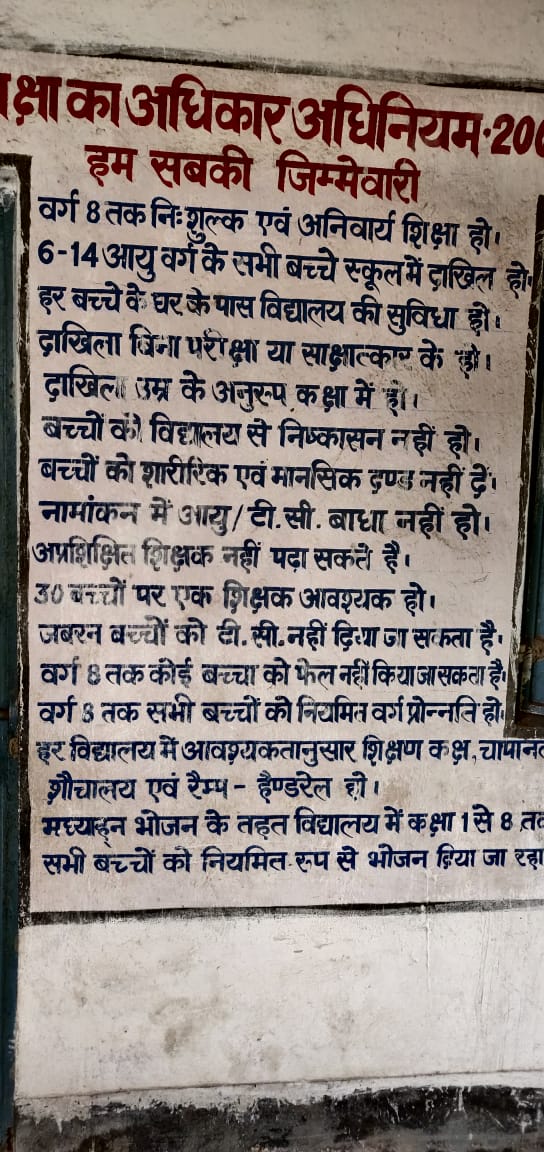 क्षा का अधिकार अधिनियम-200
हम सबकी जिम्मेवारी
वर्ग 8 तक निःशुल्क एवं अनिवार्य शिक्षा हो।
6-14 आयु वर्ग के सभी बच्चे स्कूल में दाखिल हो।
हर बच्चे के घर के पास विद्यालय की सुविधा हो।
दाखिला बिना परीक्षा या साक्षात्कार के हो।
दाखिला उम्र के अनुरुप कक्षा में हो।
बच्चों की विद्यालय से निष्कासन नहीं हो।
बच्चों को शारीरिक एवं मानसिक दण्ड नहीं दें।
नामांकन में आयु/टी.सी. बाधा नहीं हो।
अप्रशिक्षित शिक्षक नहीं पढ़ा सकते है।
30 बच्चों पर एक शिक्षक आवश्यक हो।
जबरन बच्चों को टी.सी. नहीं दिया जा सकता है।
वर्ग 8 तक कोई बच्चा को फेल नहीं किया जा सकता है।
वर्ग 8 तक सभी बच्चों को नियमित वर्ग प्रोन्नति हो।
हर विद्यालय में आवश्यकतानुसार शिक्षण कक्ष, चापान
शौचालय एवं रैम्प - हैण्डरेल हो।
मध्याह्न भोजन के तहत विद्यालय में कक्षा 1 से 8 त
सभी बच्चों को नियमित रुप से भोजन दिया जा रहा